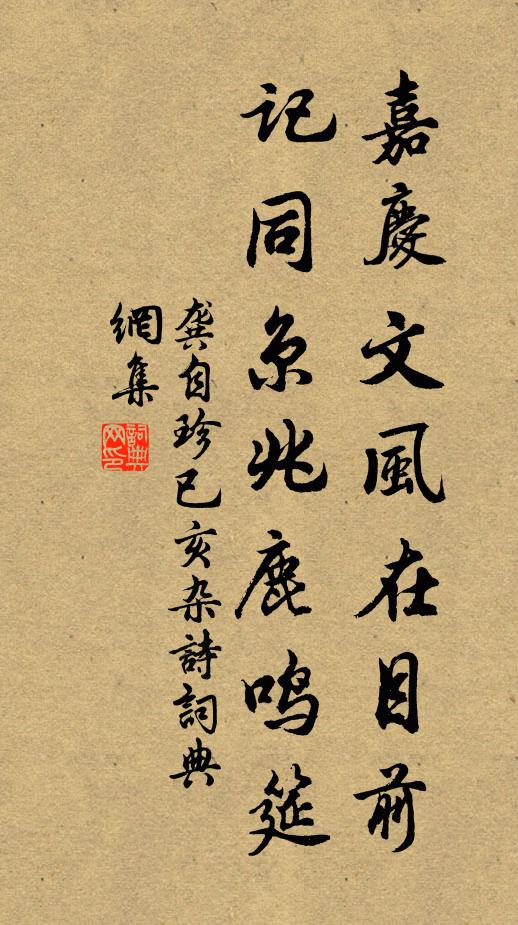 嘉慶文風在目前
記同京兆鹿鳴筵
龔自珍己亥杂詩詞典
網集
詞典
网印